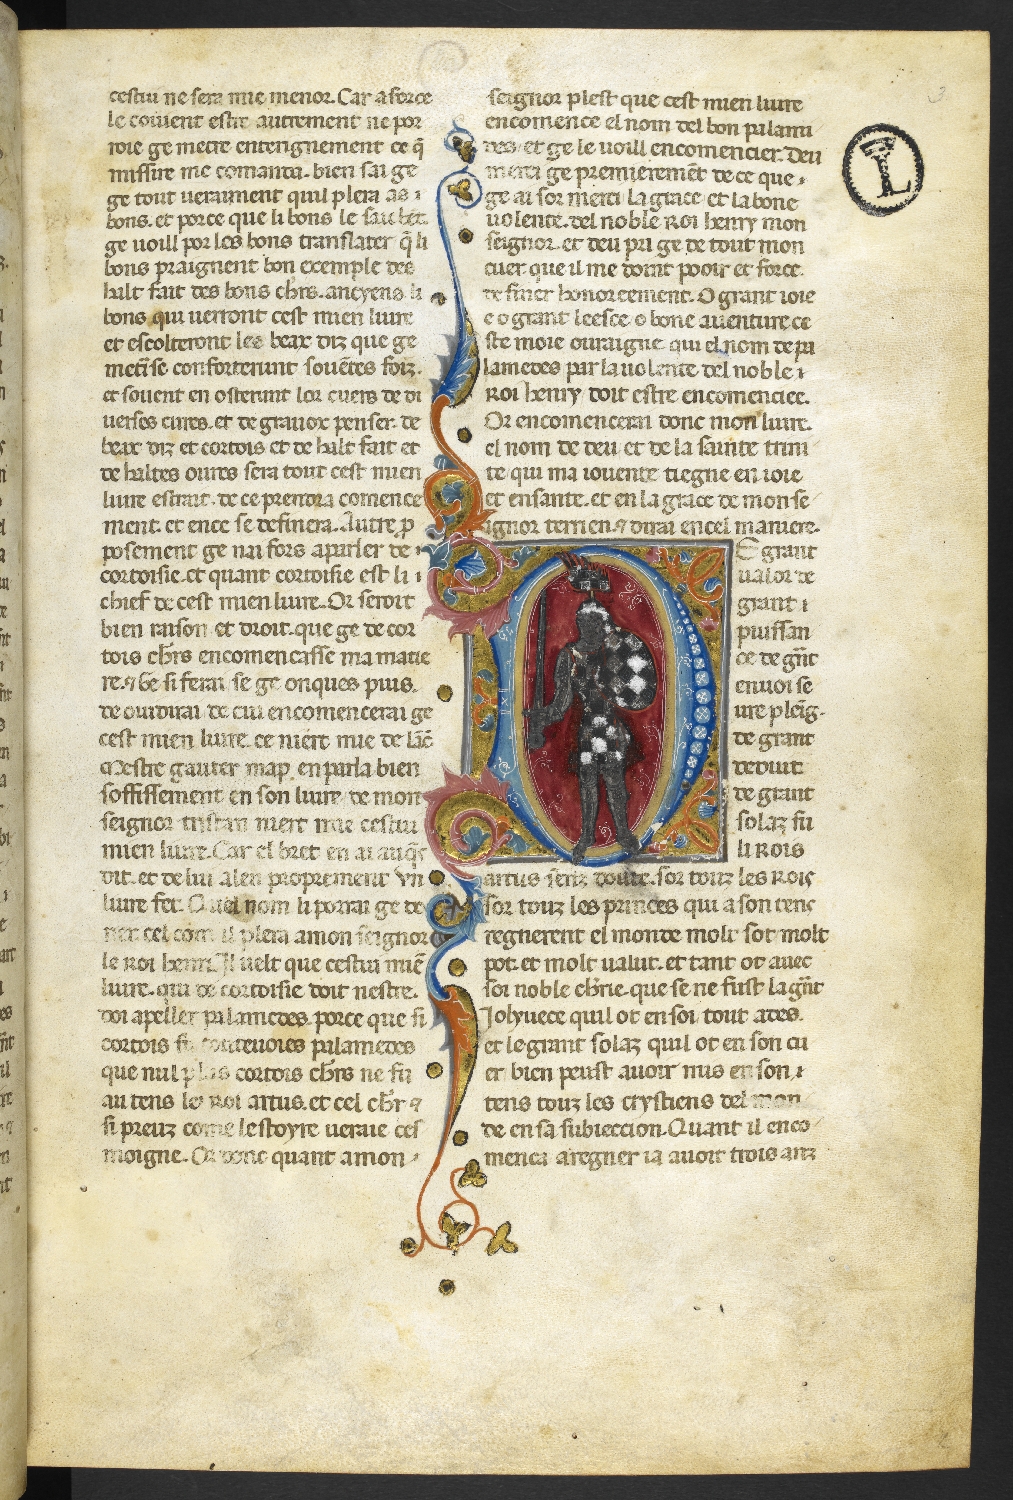 cestui ne sera mie menor. Car a force
le couient estre autrement ne por
roie ge metre entengnement ce q̄
missire me comanda. bien sai ge
ge tout uerament quil plera as
bons. et porce que li bons le
ge uoill por les bons translater q̄ li
bons praignent bon exemple des
halt fait des bons chrs. ancyens li
bons qui uerront cest mien liure
et escolteront les beax diz que ge
metrai se conforterunt souētes foiz.
et souent en osterunt lor cuers de di
uerses cures. et de grauox penser. de
beax diz et cortois et de halt fait et
de haltes oures sera tout cest mien
liure estrait. de ce prendra comence
ment. et en ce se definera. Autre p
posement ge nai fors a parler de
cortoisie. et quant cortoisie est li
chief de cest mien liure. Or seroit
bien raison et droit. que ge de cor
tois chrs encomencasse ma matie
re. si ferai se ge onques puis.
de cui encomencerai ge
cest mien liure. ce niert mie de lāc̄
Mestre gauter map. en parla bien
soffissement en son liure. de mon
seignor tristan niert mie cestui
mien liure. Car el bret en ai
dit. et de lui a len proprement vn
liure fet. Quel nom li porrai ge do
ner cel com il plera a mon seignor
le roi henri. Il uelt que cestui miē
liure. qui de cortoisie doit nestre.
doi apeller palamedes. porce que si
cortois fu toutesuoies palamedes
que nul plus cortois chrs ne fu
au tens le roi artus. et cel chr
si preuz come lestoyre ueraie tes
moigne. Or donc quant a mon
seignor plest que cest mien liure
encomence el nom del bon palam
des. et ge le uoill encomencier. Deu
merci ge premierement de ce que
ge ai sor merci la grace et la bone
uolente. del noble Roi henry mon
seignor. et deu pri ge de tout mon
cuer que il me doint pooir et force.
de finer honoreement. O grant ioie
e o grant leesce o bone auenture ce
ste moie ouraigne. qui el nom de pa
lamedes par la uolente del noble
Roi henry doit estre encomencee.
Or encomencerai donc mon liure.
el nom de deu et de la sainte trini
te qui ma iouente tiegne en ioie
et en sante. et en la grace de mon se
ignor terrien. dirai en cel maniere.
E grant
ualor de
grant
puissan
ce de gn̄t
enuoise
ure plei̅g.
de grant
deduit
de grant
solaz fu
li Rois
artus senz doute. sor touz les rois
sor touz les princes qui a son tens
regnerent el monde molt sot molt
pot. et molt ualut. et tant ot auec
soi noble chrie. que se ne fust la gn̄t
Jolyuece quil ot en soi tout ades.
et le grant solaz quil ot en son cu
er bien peust auoir mis en son
tens touz les crystiens del mon
de en sa subieccion. Quant il enco
menca a regner ia auoit trois anz
L
3